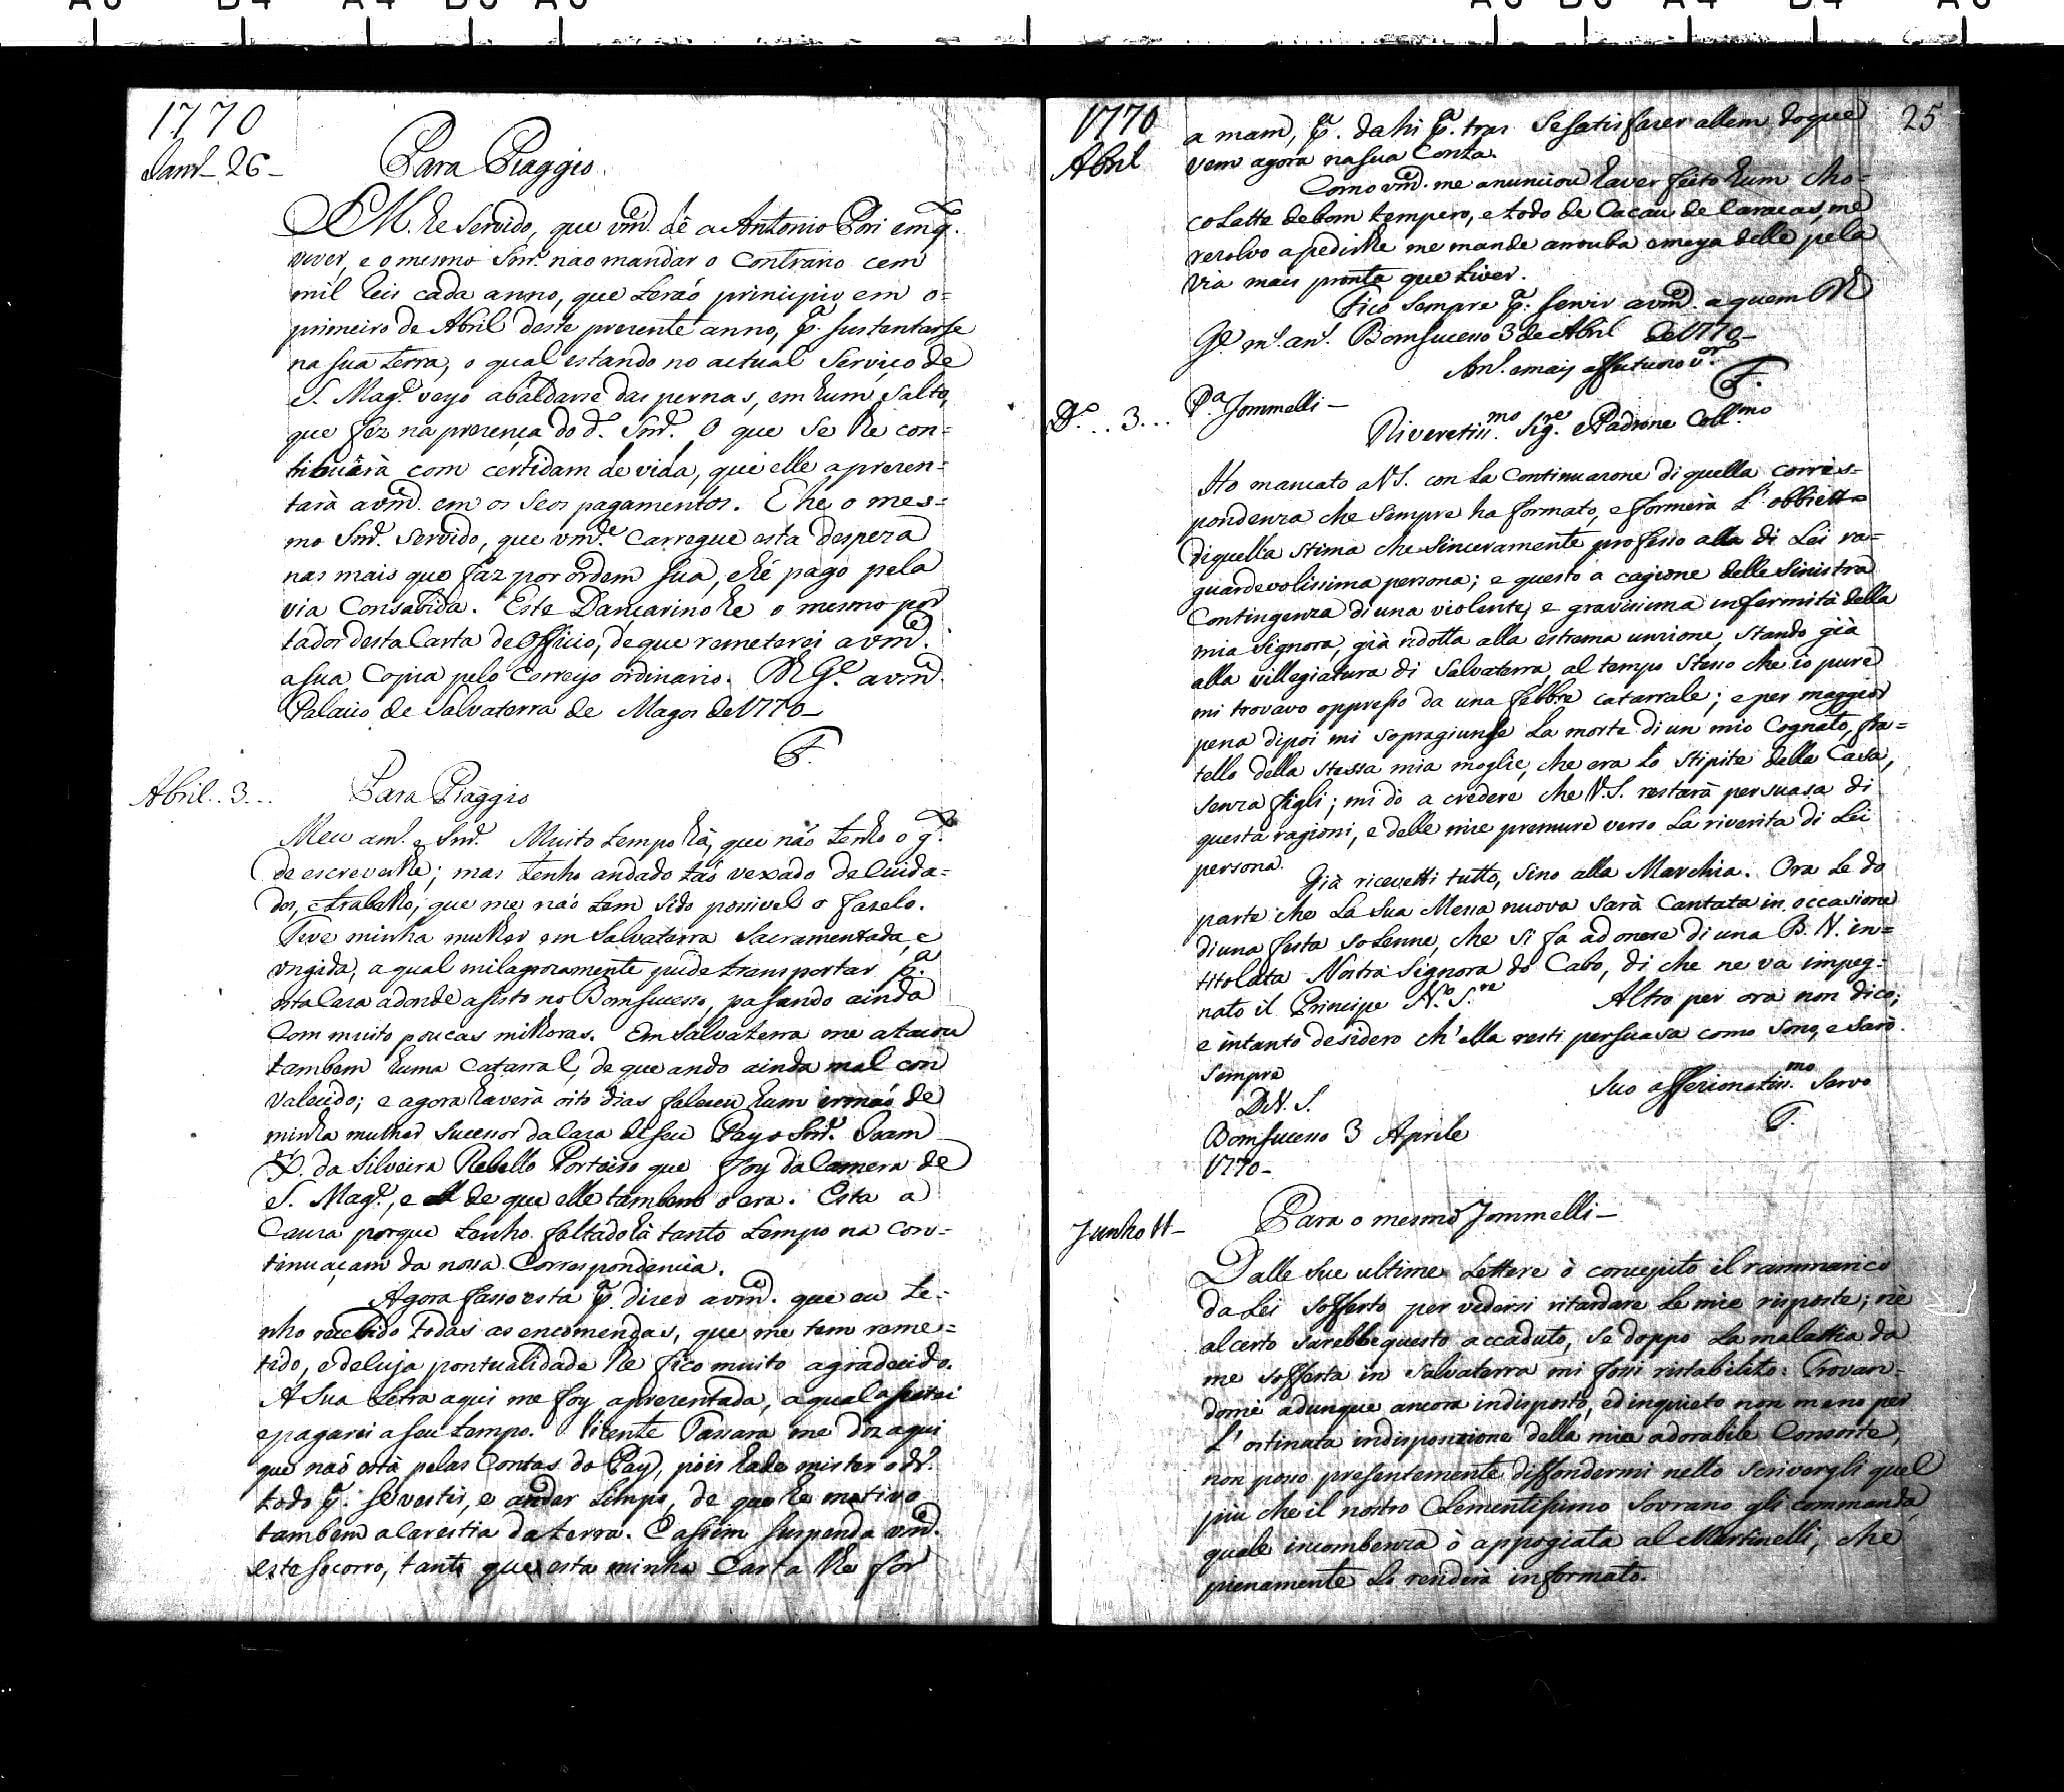 1770
Janr.º 26 –
Para Piaggio.
S. M. he Servido, que vm.ce dê a Antonio Pori em q.to
viver, e o mesmo Snr. nao mandar o Contrario cem
mil Reis cada anno, que teráo principio em o=
primeiro de Abril deste prezente anno, p.a sustentarse
na sua terra, o qual estando no actual Serviço de
S. Mag.e veyo abaldarse das pernas, em hum Salto,
que fez na prezença do d.º Snr. O que se lhe con=
tribuirà com certidam de vida, que elle aprezen=
tarà avm.ce em os Seos pagamentos. E he o mes=
mo Snr. Servido, que vm.ce Carregue esta despeza
nas mais que faz por ordem Sua, e hé pago pela
via Consabida. Este Dançarino he o mesmo por
tador desta Carta de Officio, de que remeterei avm.ce
a sua Copia pelo Correyo ordinario. D.s G.e avm.ce
Palacio de Salvaterra de Magos de 1770 –
P.
Abril.. 3...
Para Piaggio
Meu am.º e Snr. Muito tempo hà, que náo tenho o g.to
de escreverlhe; mas tenho andado táo vexado de Cuida=
dos, e trabalho, que me náo tem sido possivel o fazelo.
Tive minha mulher em Salvaterra Sacramentada, e
vngida, a qual milagrozamente pude transportar p.a
esta Caza adonde asisto no Bomsucesso, pasando ainda
Com muito poucas milhoras. Em Salvaterra me atacou
tambem huma Catarral, de que ando ainda mal con
valecido; e agora haverà oito dias faleceu hum irmaó de
minha mulher Sucessor da Caza de seu Pay o Snr. Joam
P.r da Silveira Rebello Porteiro que Foy da Camera de
S. Mag.e, e de que elle tambem o era. Esta a
Cauza porque tenho faltado là tanto tempo na con=
tinuaçam da nossa Correspondencia.
Agora fasso esta p.a dizer avm.ce que eu te=
nho recebido todas as encomendas, que me tem reme=
tido, e de cuja pontualidade lhe fico muito agradecido.
A Sua Letra aqui me foy aprezentada, a qual aseitei
e pagarei a seu tempo. Vicente Tassara me diz aqui
que náo està pelas Contas do Pay, pois hade mister o dr.º
todo p.a se vestir, e andar Limpo, de que he motivo
tambem a Carestia da terra. E assim suspenda vm.ce
este socorro, tanto que esta minha Carta lhe for
1770
Abril
25
a mam, p.a dahi p.a tras Se satisfazer allem do que
vem agora na sua Conta.
Como vm.ce me anunciou haver feito hum cho=
colatte de bom tempero, e todo de Cacau de Caracas, me
rezolvo a pedirlhe me mande arrouba e meya delle pela
via mais pronta que tiver.
Fico sempre p.a servir avm.ce a quem D.s
G.e m.s an.s Bomsucesso 3 de Abril de 1770 –
Am.º e mais affectuozo v.or
P.
D.º... 3...
P.a Jommelli –
Riveretiss.mo Sig.re e Padrone Coll.mo
Ho mancato a V.S. con la Continuazone di quella corris=
pondenza che sempre ha formato, e formerà L'obbietto
di quella stima che sinceramente professo alla di Lei ra=
guardevolissima persona; e questo a cagione delle Sinistra
Contingenza di una violente, e gravissima infermità della
mia Signora, già ridotta alla estrema unzione, stando già
alla villegiatura di Salvaterra, al tempo stesso che io pure
mi trovavo oppresso da una febbre catarrale; e per maggior
pena dipoi mi sopragiunse la morte di un mio Cognato, fra=
tello della stessa mia moglie, che era lo Stipite della Casa,
senza figli; mi dò a credere che V.S. restarà persuasa di
questa ragioni, e delle mie premure verso la riverita di Lei
persona.
Già ricevetti tutto, sino alla Marchia. Ora le do
parte che la Sua Messa nuova sarà Cantata in occasione
di una festa solenne, che si fa ad onore di una B. V. in=
titolata Nostra Signora do Cabo, di che ne va impeg=
nato il Principe N.º S.re Altro per ora non dico;
e intanto desidero ch'ella resti persuasa como sono, e sarò
sempre
D. V. S.
Suo affezionatiss.mo Servo
P.
Bomsucesso 3 Aprile
1770 –
Junho 11 –
Para o mesmo Jommelli –
Dalle sue ultime Lettere ò concepito il rammarico
da Lei sofferto per vedersi ritardare le mie risposte; nè
al certo sarebbe questo accaduto, se doppo la malattia da
me sofferta in Salvaterra mi fossi ristabilito. Trovan=
domi adunque ancora indisposto, ed inquieto non meno per
L'ostinata indisposizione della mia adorabile Consorte,
non posso presentemente diffondermi nello scrivergli quel
più che il nostro Clementissimo Sovrano gli commanda,
quale incombenza ò appogiata al Martinelli, che
pienamente Lo renderà informato.